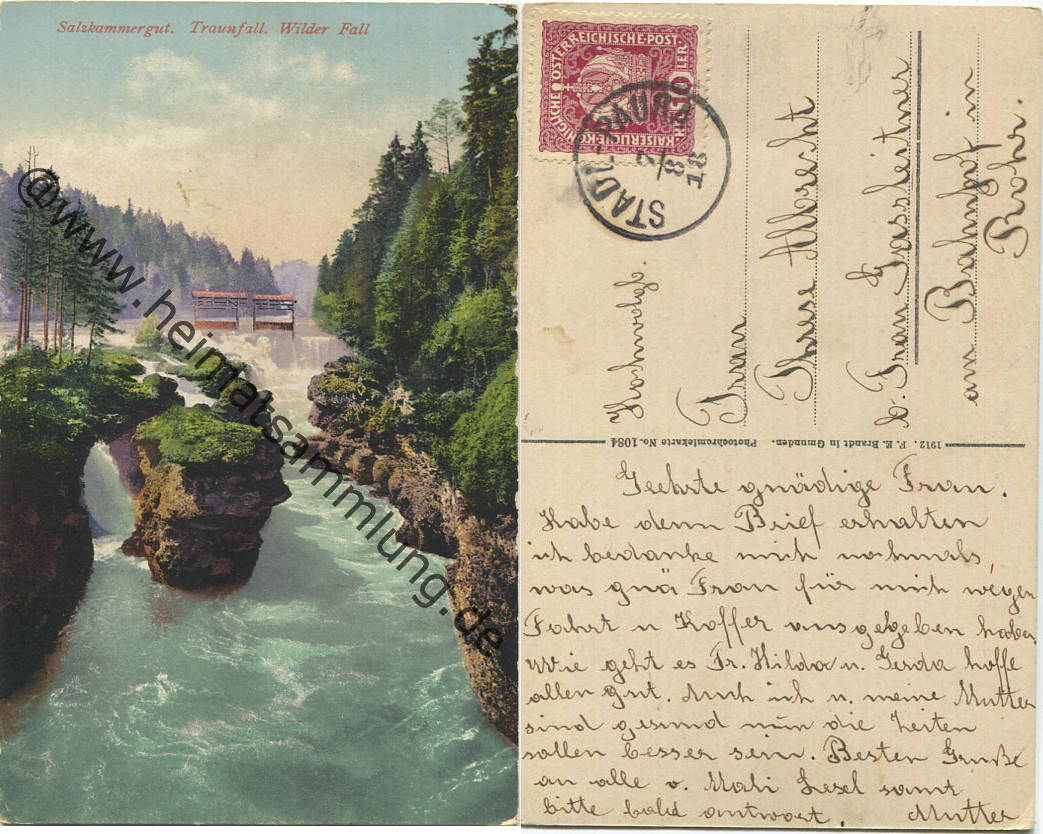 Salzkammergut. Traunfall. Wilder Fall
@www.heimatsammlung.de
KAISERLICHE KÖNIGLICHE ÖSTERREICHISCHE POST
10 HELLER
STADL-TRAURA
2/8 18
Hochwohlg.
Frau
Therese Albrecht
b. Frau Gassleitner
am Bahnhof in
Rohr.
1912. F. E. Brandt in Gmunden. Photochromiekarte No. 1084
Geehrte gnädige Frau.
Habe denn Brief erhalten
ich bedanke mich nohmals,
was gnä Frau für mich wegen
Fahrt u Koffer ausgegeben haben
Wie geht es Fr. Hilda u. Gerda hoffe
allen gut. Auch ich u. meine Mutter
sind gesund nun die Zeiten
sollen besser sein. Besten Gruße
an alle v. Mali Lesel samt
bitte bald antwort. Mutter